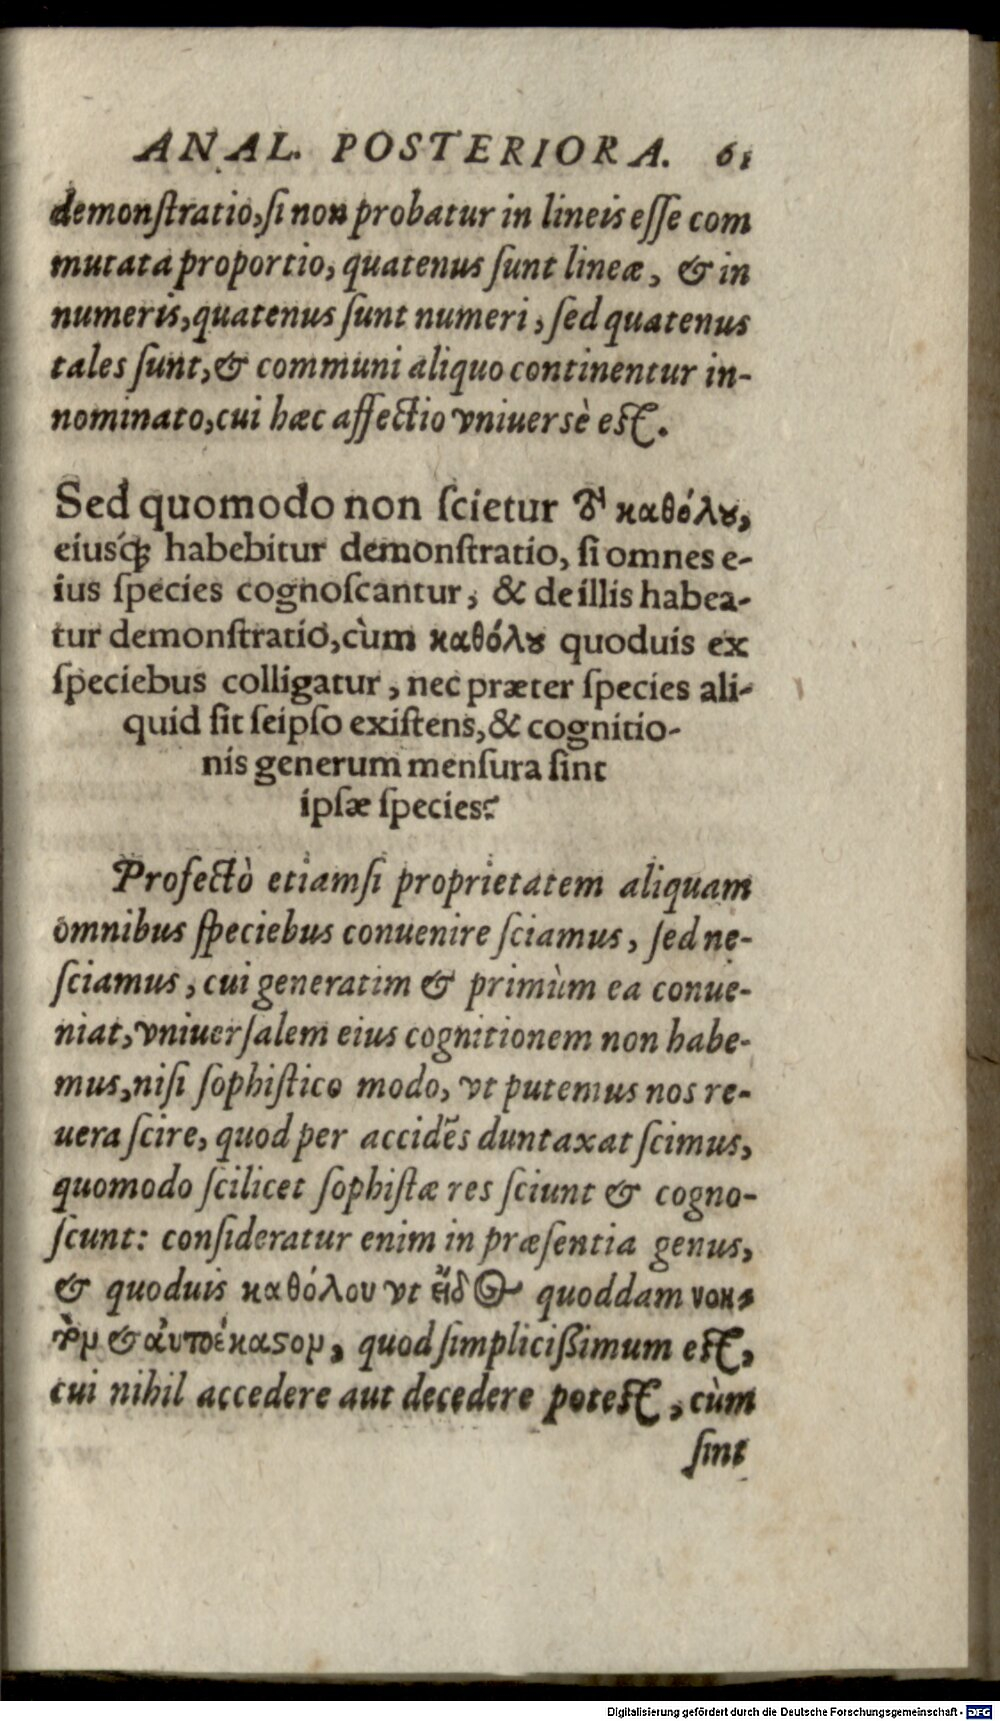 ANAL. POSTERIORA. 61
demonſtratio,ſi non probatur in lineis eſſe com
mutata proportio, quatenus ſunt lineæ, & in
numeris,quatenus ſunt numeri, ſed quatenus
tales ſunt,& communi aliquo continentur in-
nominato,cui hæc affectio vniuersè eſt.
Sed quomodo non ſcietur τὸ καθόλȣ,
eiusq́; habebitur demonſtratio, ſi omnes e-
ius ſpecies cognoſcantur, & de illis habea-
tur demonſtratio,cùm καθόλȣ quoduis ex
ſpeciebus colligatur, nec præter ſpecies ali-
quid ſit ſeipſo exiſtens,& cognitio-
nis generum menſura ſint
ipſæ ſpecies?
Profectò etiamſi proprietatem aliquam
omnibus ſpeciebus conuenire ſciamus, ſed ne-
ſciamus, cui generatim & primùm ea conue-
niat,vniuerſalem eius cognitionem non habe-
mus,niſi ſophiſtico modo, vt putemus nos re-
uera ſcire, quod per accidẽs duntaxat ſcimus,
quomodo ſcilicet ſophiſtæ res ſciunt & cogno-
ſcunt: conſideratur enim in præſentia genus,
& quoduis καθόλου vt εἶδος quoddam νοη-
τὸν & αὐτοέκαϛον, quod ſimpliciſsimum eſt,
cui nihil accedere aut decedere poteſt, cùm
ſint
Digitalisierung gefördert durch die Deutsche Forschungsgemeinschaft - DFG